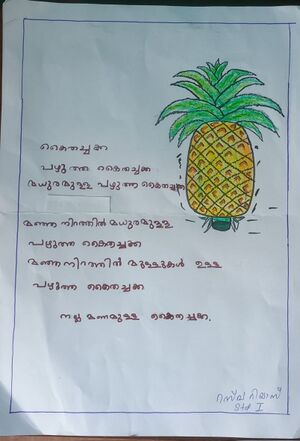 കൈതച്ചക്ക
പഴുത്ത കൈതച്ചക്ക
മധുരമുള്ള പഴുത്ത കൈതച്ചക്ക
മഞ്ഞനിറത്തിൽ മധുരമുള്ള
പഴുത്ത കൈതച്ചക്ക
മഞ്ഞനിറത്തിൽ മുള്ളുകൾ ഉള്ള
പഴുത്ത കൈതച്ചക്ക
നല്ല മണമുള്ള കൈതച്ചക്ക.
റിയാസ്
Std I